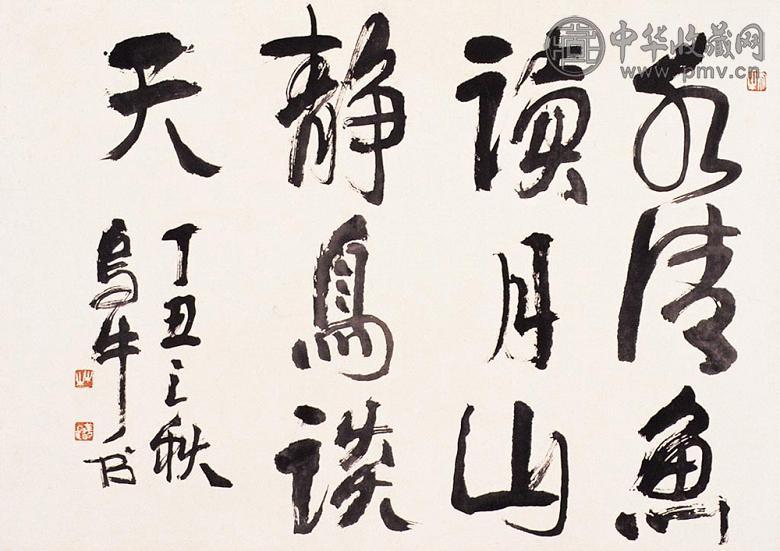 中华收藏网
www.pmv.cn
水清魚
讀月山
静鳥談
天
丁丑之秋
烏牛书